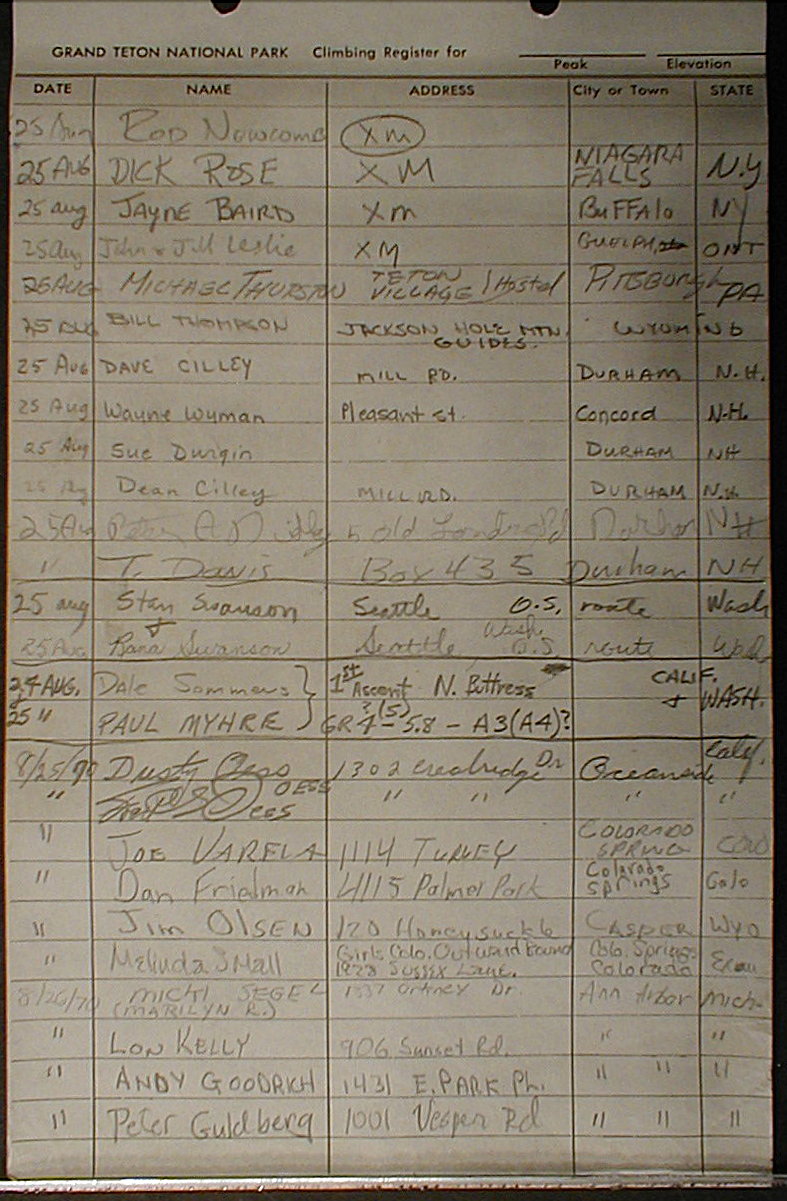 GRAND TETON NATIONAL PARK Climbing Register for
Peak Elevation
DATE NAME ADDRESS City or Town STATE
25 Aug Rod Newcomb XM
25 AUG DICK ROSE XM NIAGARA FALLS N.Y
25 aug JAYNE BAIRD Xm BuFFAlo NY
25 Aug John & Jill Leslie XM GUELPH, ONT
25 AUG MICHAEL THURSTON TETON VILLAGE / Hostel PITTSBURGH PA
25 AUG BILL THOMPSON JACKSON HOLE MTN. GUIDES. WYOMING
25 Aug DAVE CILLEY MILL RD. DURHAM N.H.
25 Aug Wayne Wyman Pleasant st. Concord N.H.
25 Aug Sue Durgin DURHAM NH
25 Aug Dean Cilley MILL RD. DURHAM N.H.
25 Aug A 5 old NH
" T. Davis Box 435 Durham NH
25 aug Stan Swanson Seattle O.S. route Wash
&
25 Aug Rana Swanson Seattle Wash. O.S. route Wash
24 AUG. DALE Sommers } 1st Ascent N. Buttress CALIF.
25 " PAUL MYHRE GR 4 ?(5) - 5.8 - A3(A4)? & WASH.
8/25/70 Dusty Oess OESS 1302 Dr Oceanside Calif.
" Oess " " " "
" JOE VARELA 1114 TURLEY COLORADO SPRING COLO
" Dan Friedman 4115 Palmer Park Colorado Springs Colo
" Jim OLSEN 120 Honeysuckle CASPER WYO
" Melinda Small Girls Colo. Outward Bound 1922 SUSSEX LANE. Colo. Springs Colorado
8/26/70 MICKI SEGEL (MARILYN R.) 1337 Orkney Dr. Ann Arbor Mich.
" LON KELLY 906 Sunset Rd. " "
" ANDY GOODRICH 1431 E. PARK PL. " " "
" Peter Guldberg 1001 Vesper Rd " " "